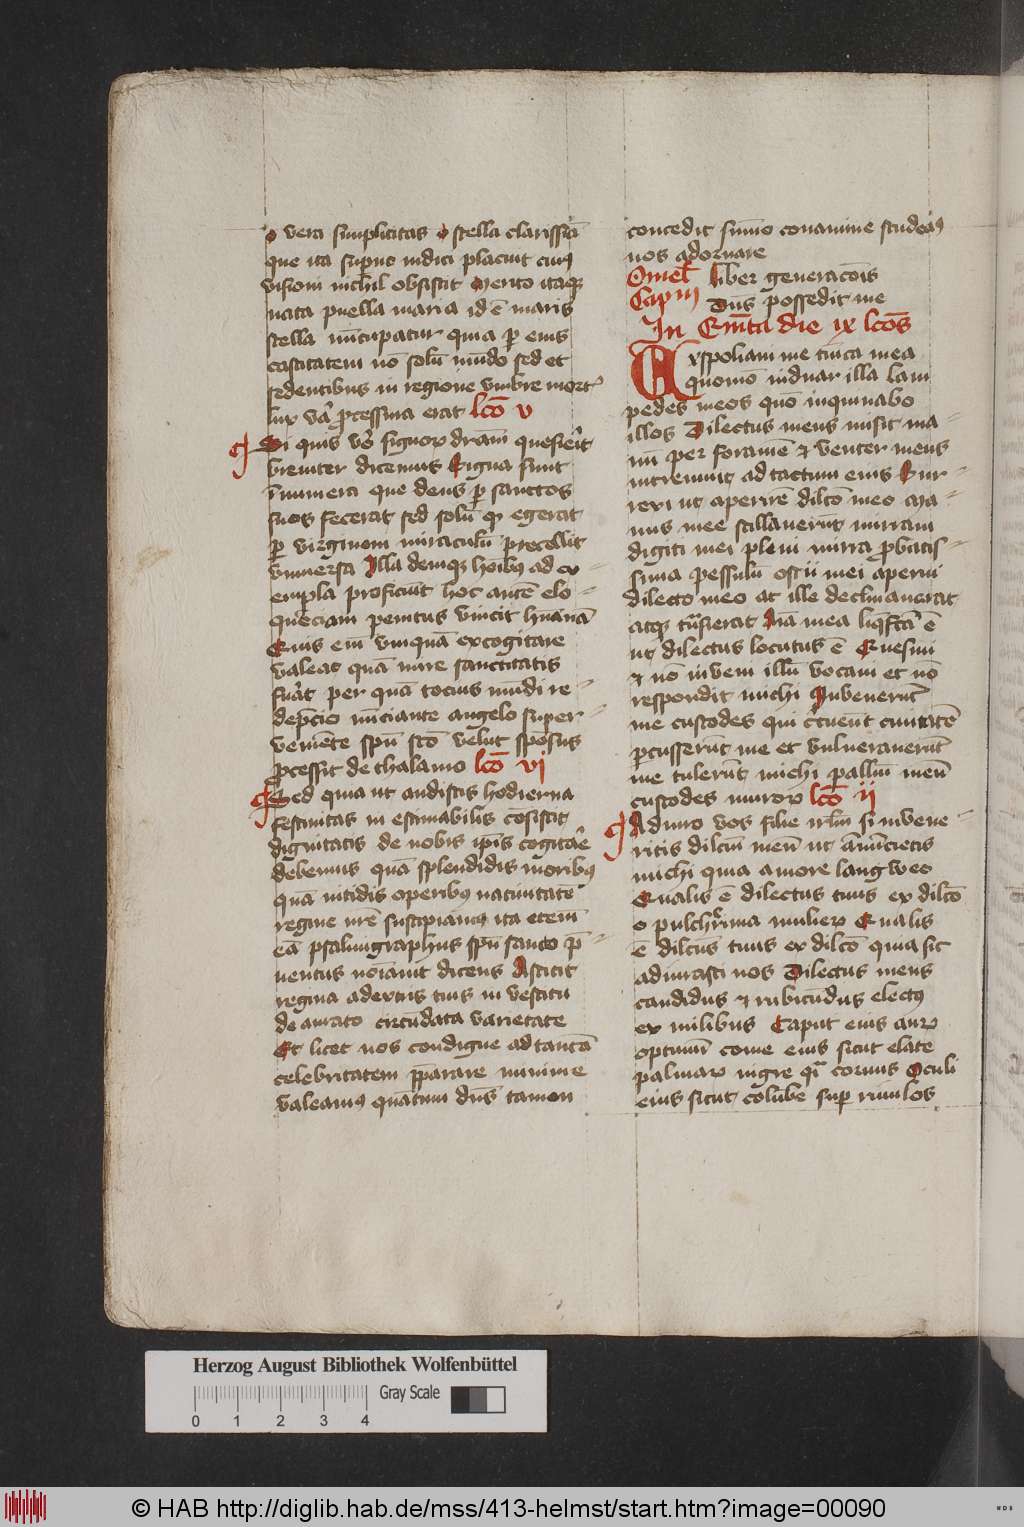 o vera simplicitas o stella clarissiā
que ita suꝑne iudici placuit cuiꝰ
visioni nichil obsistit Merito itaqꝫ
uata puella maria id ē maris
stella nūcupatur quia ꝑ eius
castitatem nō solū mūdo sed et
sedentibus in regione vmbre mort
lux ꝓcessura erat lcō v
Si quis vo signorꝫ dram quesierit
breuiter dicemus Signa sunt
īnumera que deus ꝑ sanctos
suos fecerat sed solū qꝫ egerat
ꝑ virginem miraculū precellit
vniuersa Illa deniqꝫ hoībꝰ ad ex-
empla proficiūt hoc autē elo-
quēciam penitus vincit huānā
Quis em̄ vnquā excogitare
valeat quā mire sanctitatis
fuit per quā tocius mūdi re-
depcio nūciante angelo super-
veniēte spū scō velut sposus
ꝓcessit de thalamo lcō vi
Sed quia ut audistis hodierna
festiuitas in estimabilis cōsistit
dignitatis de nobis ipīs cogitāe
debemus quā splendidis moribꝰ
quā nitidis operibꝰ natiuitatē
regine nrē suscipiamꝰ ita etenī
eā psalmigraphus spū sancto p̄-
ventus nōiauit dicens Astitit
regina adextris tuis in vestitu
de aurato circūdata varietate
Et licet nos condigne ad tantā
celebritatem p̄parare minime
valeamꝰ quatum dn̄s tamen
concedit sūmo conamine studeaꝰ
nos adornare
Omel Liber generacōis
Cap m Dn̄s possedit me
In Qūita die ix lcōs
Exspoliaui me tūica mea
quomō induar illa Laui
pedes meos quō inquinabo
illos Dilectus meus misit ma-
nū per foramē ⁊ venter meus
intremuit ad tactum eius Sur-
rexi ut aperirē dilcō meo Ma-
nus mee stillauerūt mirram
digiti mei pleni mirra ꝓbatis-
sima pessulū ostii mei aperui
dilecto meo at ille declinauerat
atqꝫ tn̄sierat Aīa mea liqfcā ē
ut dilectus locutus ē Quesiui
⁊ nō inueni illū vocaui et nō
respondit michi Inuenerūt
me custodes qui c̄cueūt ciuitatē
ꝑcusserūt me et vulnerauerūt
me tulerūt michi palliū meū
custodes murorꝫ lcō ii
Adiuro vos filie irlm̄ si inuene-
ritis dilcm̄ meū ut ānūcietis
michi quia amore langweo
Qualis ē dilectus tuus ex dilcō
o pulcherima mulierꝫ Qualis
ē dilcūs tuus ex dilcō quia sic
adiurasti nos Dilectus meus
candidus ⁊ rubicūdus electꝰ
ex milibus Caput eius aurꝫ
optimū come eius sicut elate
palmarꝫ nigre qī coruus Oculi
eius sicut colūbe sup riuulos
Herzog August Bibliothek Wolfenbüttel
Gray Scale
0 1 2 3 4
© HAB http://diglib.hab.de/mss/413-helmst/start.htm?image=00090
WDB